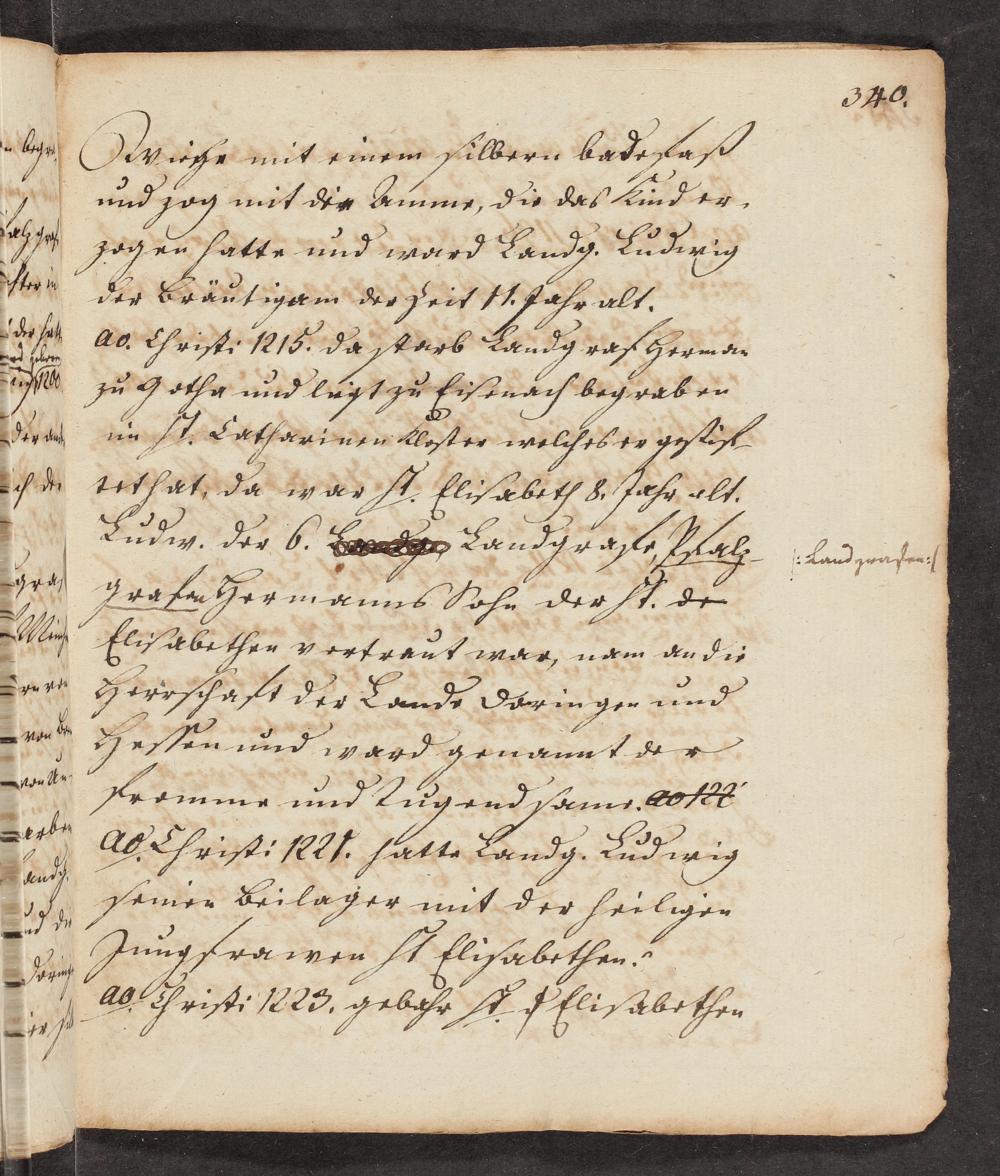 340.
Wiege mit einem silbern badefaß
und zog mit der Amme, die das Kind er-
zogen hatte und ward Landg. Ludwig
der Bräutigam der Zeit 11. Jahr alt.
ao. Christi 1215. da starb Landgraf Herman
zu Gotha und ligt zu Eisenach begraben
im St. Catharinen Kloster welches er gestif-
tet hat, da war St. Elisabeth 8. Jahr alt.
Ludw. der 6. Landg. Landgrafe, Pfalz-
grafen Hermanns Sohn der St. de
/: Landgrafen :/
Elisabethen vertraut war, nam an die
Herrschaft der Lande Döringen und
Hessen und ward genannt der
fromme und Tugendsame. ao 122
ao. Christi 1221. hatte Landg. Ludwig
seinen Beilager mit der heiligen
Jungfrawen St Elisabethen.
ao. Christi 1223. gebahr St. Elisabethen